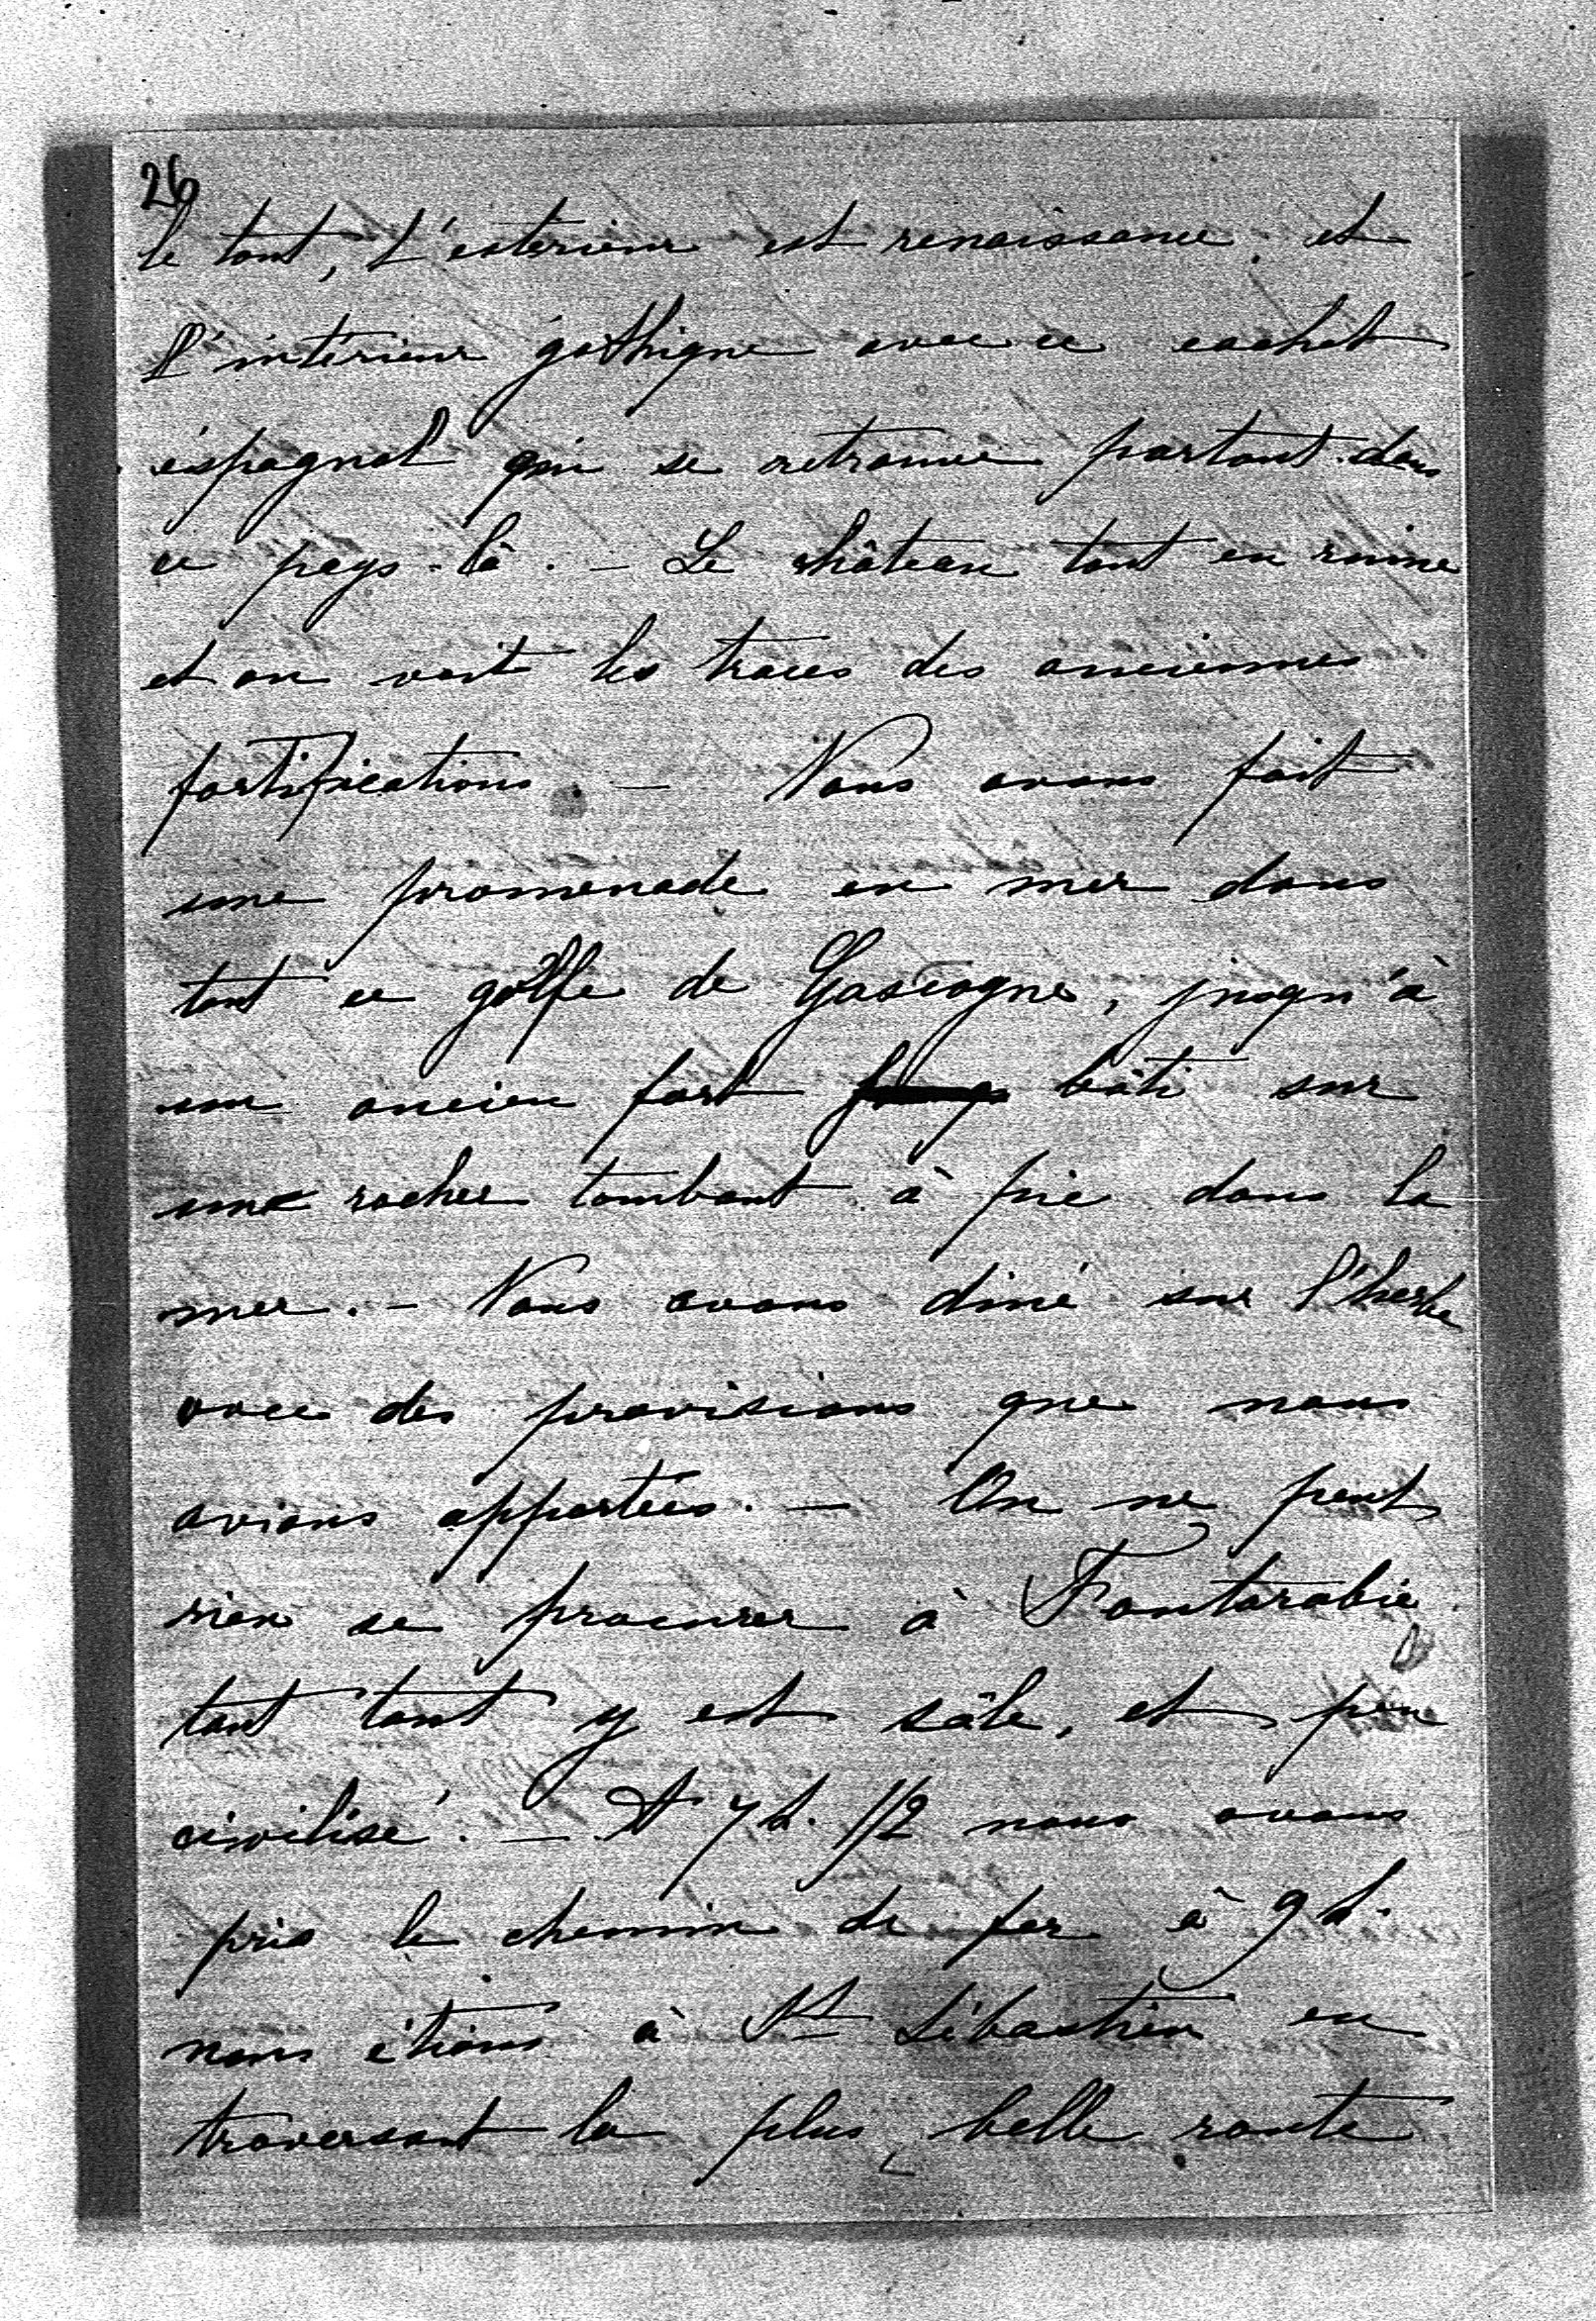 26
le tout, l'extérieur est renaissance et
l'intérieur gothique avec ce cachet
éspagnol qui se retrouve partout dans
ce pays-là. – Le château tout en ruine
et on voit les traces des anciennes
fortifications. – Nous avons fait
une promenade en mer dans
tout ce golfe de Gascogne, jusqu'à
un ancien fort bâti sur
un rocher tombant à pic dans la
mer. – Nous avons diné sur l'herbe
avec des provisions que nous
avions apportées. – On ne peut
rien se procurer à Fontarabie
tant tout y est sâle, et peu
civilisé. – A 7 h. 1/2 nous avons
pris le chemin de fer à 9 h.
nous étions à St Sébastien en
traversant la plus belle route